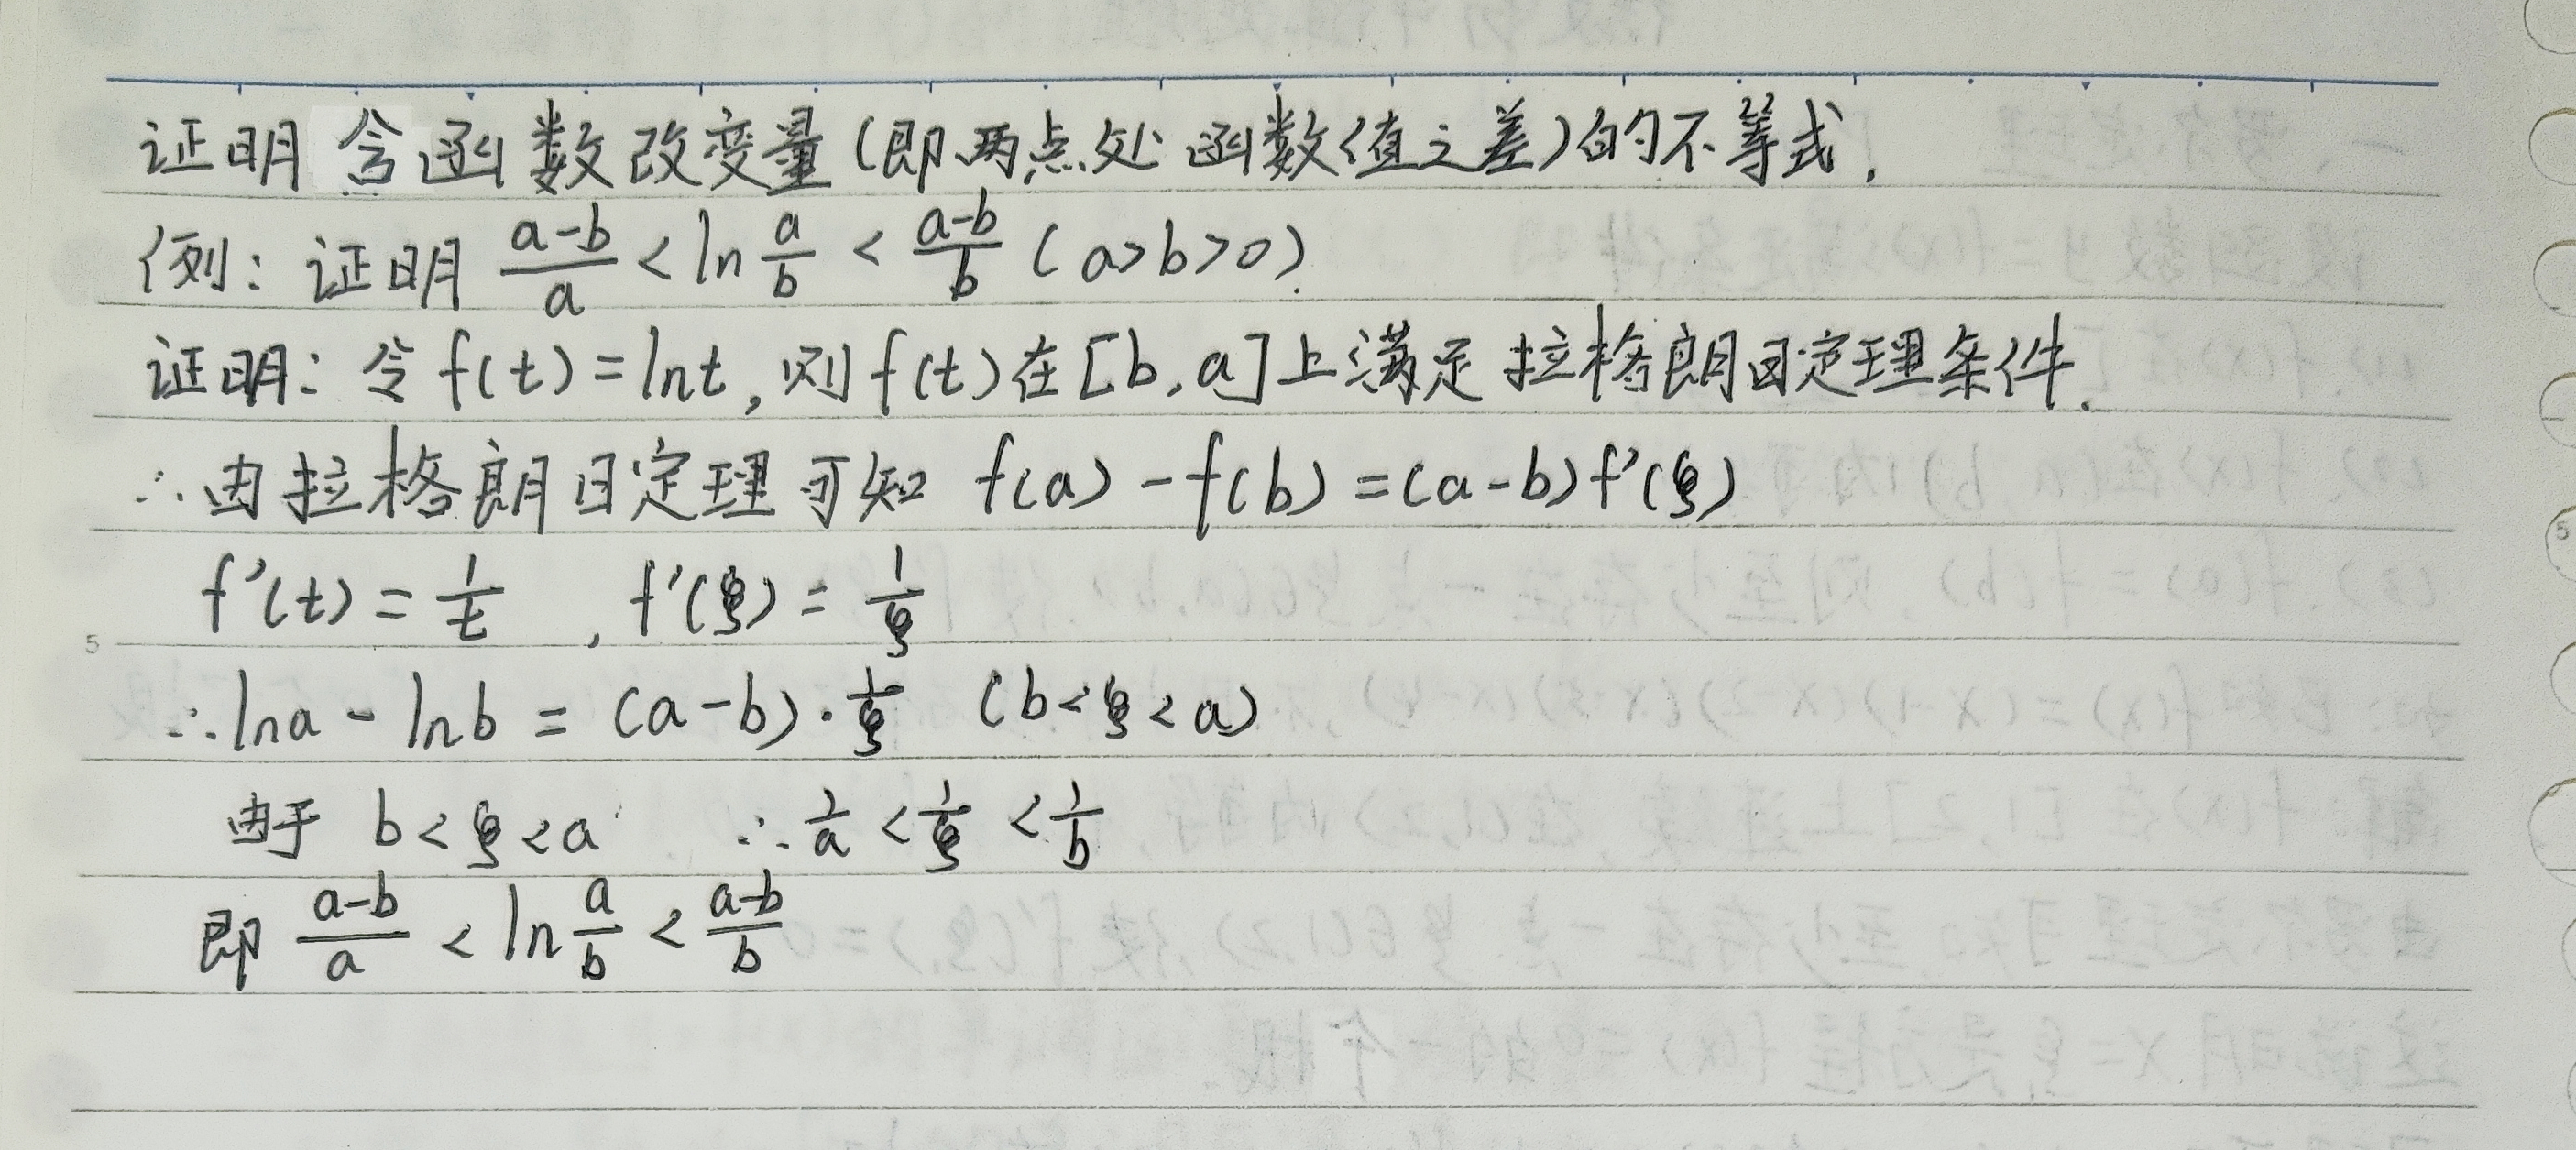 证明含函数改变量(即两点处函数值之差)的不等式.
例: 证明 \frac{a-b}{a} < ln\frac{a}{b} < \frac{a-b}{b} (a>b>0).
证明: 令 f(t)=lnt, 则f(t)在[b,a]上满足拉格朗日定理条件.
∴由拉格朗日定理可知 f(a)-f(b)=(a-b)f'(ξ)
f'(t)=\frac{1}{t} , f'(ξ)=\frac{1}{ξ}
∴lna-lnb=(a-b)·\frac{1}{ξ} (b<ξ<a)
5
由于 b<ξ<a ∴\frac{1}{a}<\frac{1}{ξ}<\frac{1}{b}
即 \frac{a-b}{a} < ln\frac{a}{b} < \frac{a-b}{b}